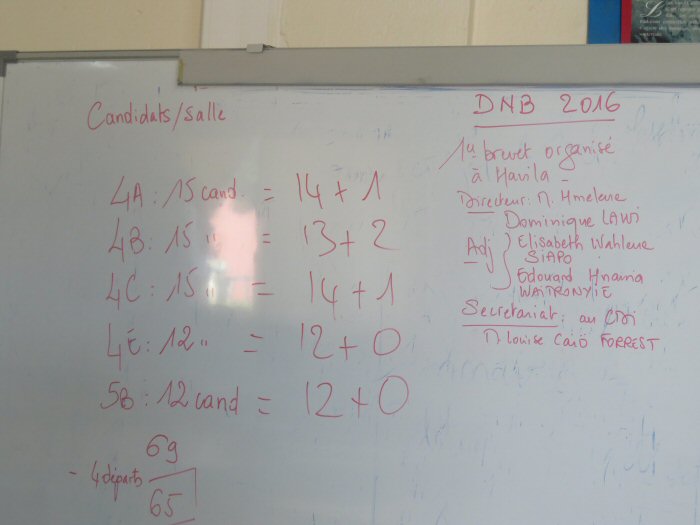 Candidats/salle
4A : 15 cand = 14 + 1
4B : 15 " = 13 + 2
4C : 15 " = 14 + 1
4E : 12 " = 12 + 0
5B : 12 cand = 12 + 0
69
- 4 départs
65
DNB 2016
brevet organisé
à Havila -
Directeur: M. Hmelene
Dominique LAWI
Adj
Elisabeth Wahlena
SIAPO
Edouard Hnama
WAITRONYIE
Secretariat: au CDI
M. Louise Caiö FORREST